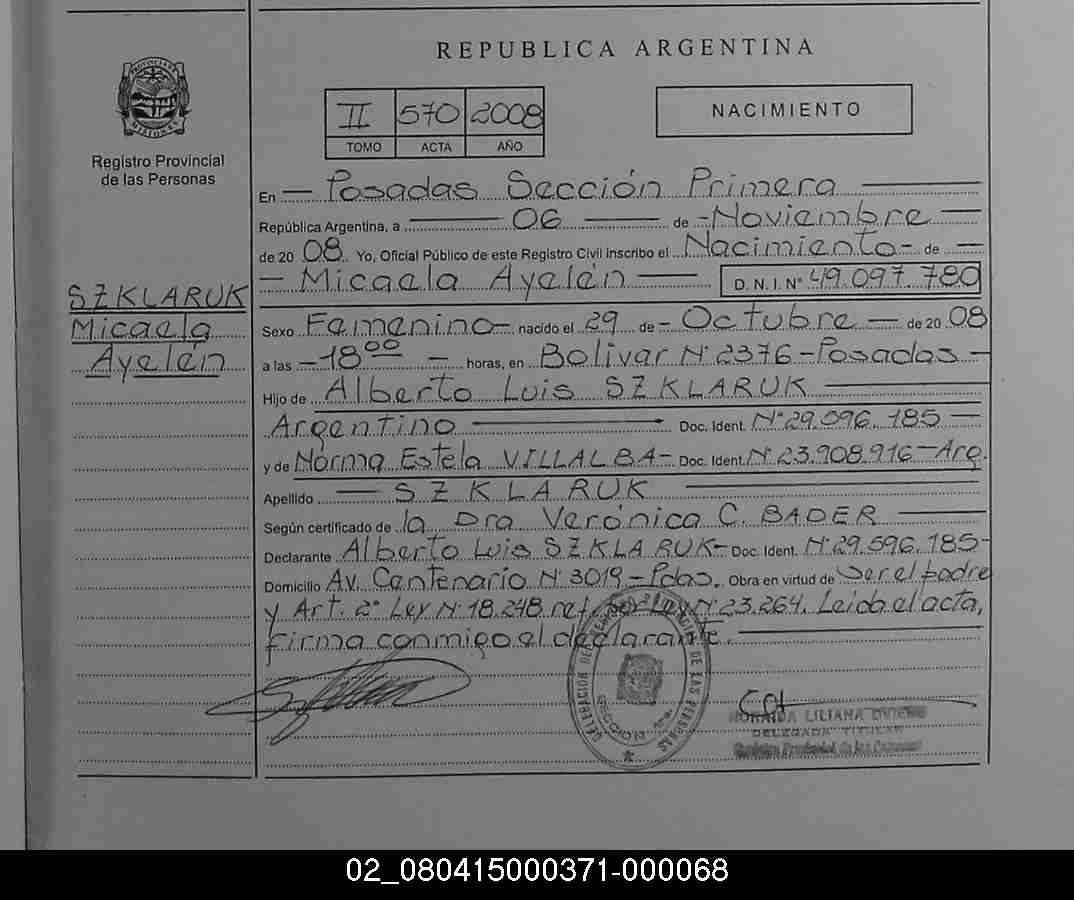 REPUBLICA ARGENTINA
PROVINCIA DE MISIONES
Registro Provincial
de las Personas
II 570 2008
TOMO ACTA AÑO
NACIMIENTO
SZKLARUK
Micaela
Ayelén
En Posadas Sección Primera
República Argentina, a 06 de Noviembre
de 20 08 Yo, Oficial Público de este Registro Civil inscribo el Nacimiento de
Micaela Ayelén D. N. I. N° 49.097.780
Sexo Femenino nacido el 29 de Octubre de 20 08
a las 18 00 horas, en Bolivar N° 2376 - Posadas
Hijo de Alberto Luis SZKLARUK
Argentino Doc. Ident. N° 29.596.185
y de Norma Estela VILLALBA Doc. Ident. N° 23.908.916 - Arg.
Apellido SZKLARUK
Según certificado de la Dra Verónica C. BADER
Declarante Alberto Luis SZKLARUK Doc. Ident. N° 29.596.185
Domicilio Av. Centenario N° 3019 - Pdas. Obra en virtud de Ser el padre
y Art. 2° Ley N° 18.248 ref. por Ley N° 23.264. Leida el acta,
firma conmigo el declarante.
DELEGACION DE LAS PERSONAS
SECCION 1ra.
LILIANA
DELEGADA TITULAR
Registro Provincial de las Personas
02_080415000371-000068